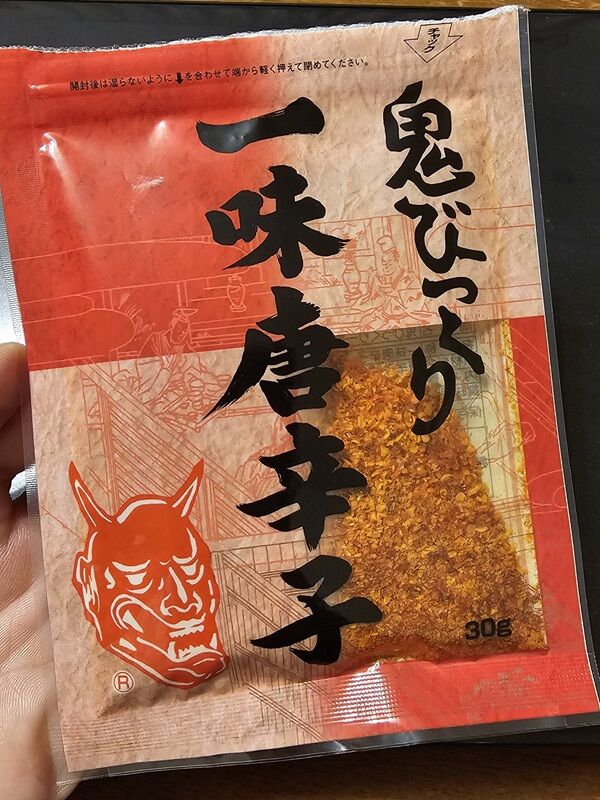 チャック
開封後は湿らないように⬇を合わせて端から軽く押えて閉めてください。
鬼びっくり
一味唐辛子
30g
®